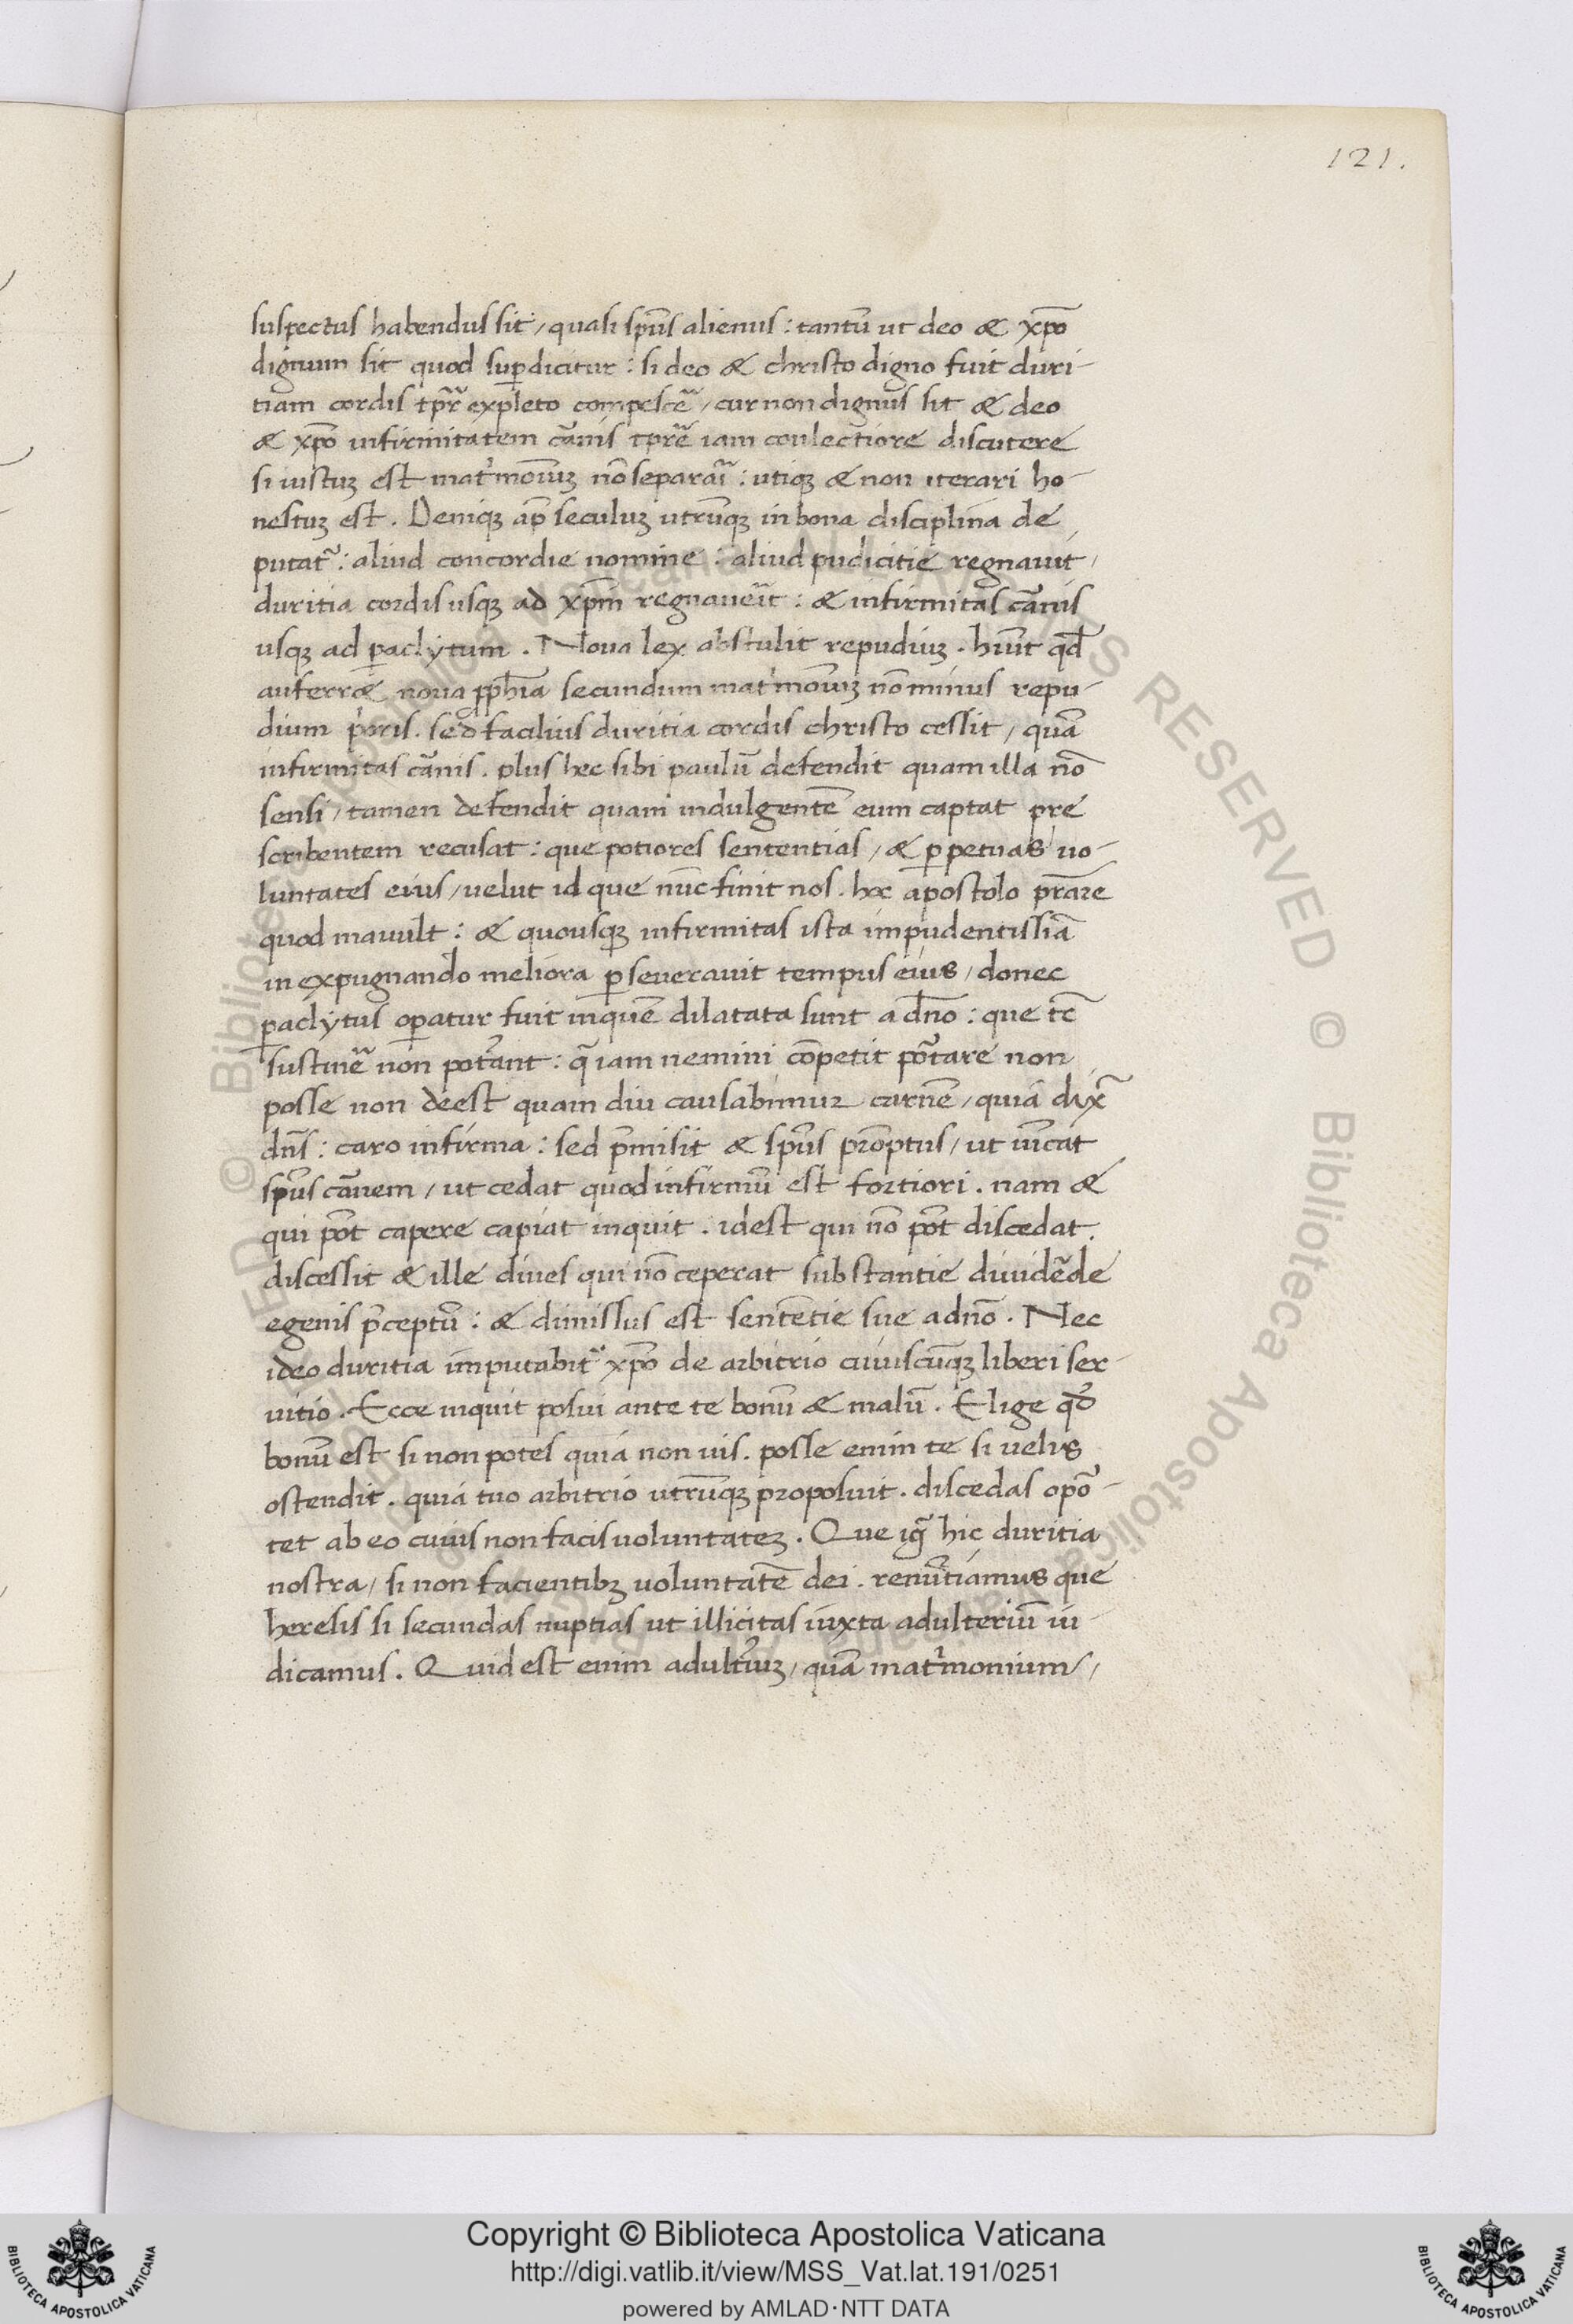 121.
suspectus habendus sit, quasi sp̄us alienus: tantū ut deo & xp̄o
dignum sit quod sup̱dicitur: si deo & christo digno fuit duri-
tiam cordis tp̄r̄ expleto compescē, cur non dignus sit & deo
& xp̄o infirmitatem cānis tp̄rē iam conlectiore discutere
si iustuꝫ est mat'moīuꝫ nō separari: utiqꝫ & non iterari ho-
nestuꝫ est. Deniqꝫ ap̄ seculuꝫ utrūqꝫ in bona disciplina de
putat᷑: aliud concordie nomine: aliud pudicitie regnauit,
duritia cordis usqꝫ ad xp̄m regnauerit: & infirmitas cānis
usqꝫ ad paclytum. Noua lex abstulit repudiuꝫ. hūit qđ
auferr& noua pph̄ia secundum mat'moīuꝫ nō minus repu-
dium p̄oris. sed facilius duritia cordis christo cessit, quā
infirmitas cānis. plus hec sibi paulū defendit quam illa nō
sensi, tamen defendit quam indulgentē eum captat pre
scribentem recusat: que potiores sententias, & p̱petuas uo-
luntates eius, velut id que nūc finit nos. hoc apostolo prāre
quod mauult: & quousqꝫ infirmitas ista impudentissīa
in expugnando meliora p̱severauit tempus eius, donec
p̱aclytus op̱atur fuit in quē dilatata sunt a dño: que tc̄
sustinē non pot'ant: q̄ iam nemini cōpetit pōtare non
posse non deest quam diu causabimur carnē, quia dix̄
dn̄s: caro infirma: sed p̄misit & sp̄us prōptus, ut uīcat
sp̄us cānem, ut cedat quod infirmū est fortiori. nam &
qui pōt capere capiat inquit. idest qui nō pōt discedat.
discessit & ille dives qui nō ceperat substantie dividēde
egenis p̄ceptū: & dimissus est sentētie sue a dnō. Nec
ideo duritia imputabit᷑ xp̄o de arbitrio cuiuscūqꝫ liberi ser-
vitio. Ecce inquit posui ante te bonū & malū. Elige qđ
bonū est si non potes quia non uis. posse enim te si velis
ostendit. quia tuo arbitrio utrūqꝫ proposuit. discedas opō-
tet ab eo cuius non facis voluntateꝫ. Que ig͡ hic duritia
nostra, si non facientibꝫ voluntatē dei. renūtiamus que
heresis si secundas nuptias ut illicitas iuxta adulteriū iu-
dicamus. Quid est enim adult'iuꝫ, quā mat'monium,
Copyright © Biblioteca Apostolica Vaticana
http://digi.vatlib.it/view/MSS_Vat.lat.191/0251
powered by AMLAD·NTT DATA